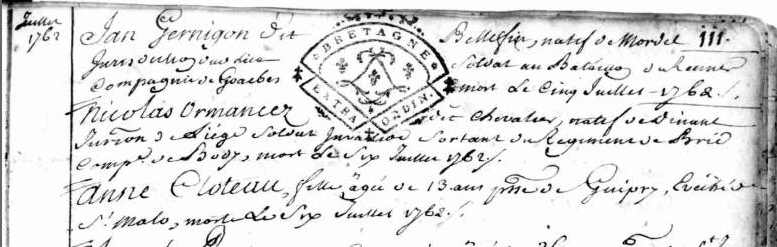 Juillet
1762
Jan Gernigon dit Bellefin, natif de Mordel 111.
Jurisdiction dudit lieu Soldat au Bataillon de Rennes
Compagnie de Goasbes mort Le Cinq Juillet 1762 /.
BRETAGNE
EXTRA ORDIN.
Nicolas Ormancez dit Chevalier, natif de Dinant
de Liége Soldat Invalide Sortant du Regiment de Brie
Comp.e de mort Le Six Juillet 1762 /.
Anne Cloteau, fille âgée de 13 ans p.sse de Guipry, Evêché de
S.t Malo, morte Le Six Juillet 1762 /.